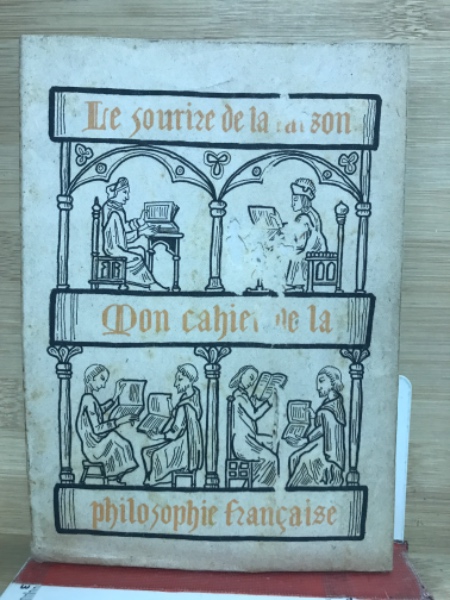 Le sourire de la raison
Mon cahier de la
philosophie française